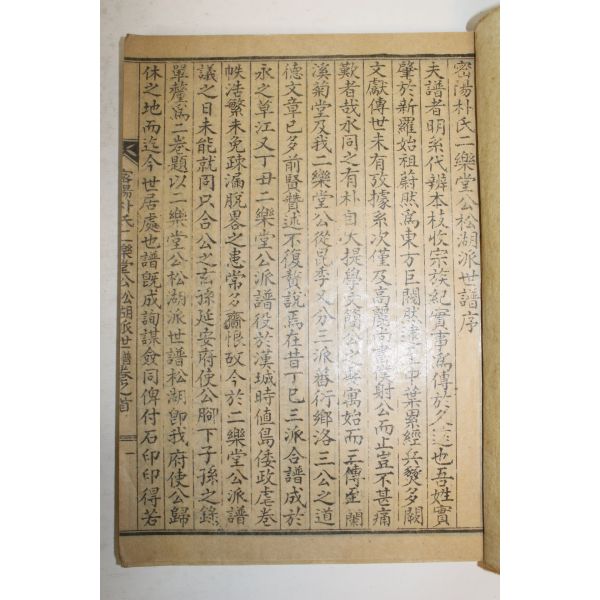 密陽朴氏二樂堂公松湖派世譜序
夫譜者明系代辨本枝收宗族紀實事爲傳於久遠也吾姓實
肇於新羅始祖蔚然爲東方巨閥然遠中葉累經兵燹多闕
文獻傳世未有攷據系次僅及高麗尚書僕射公而止豈不甚痛
歎者哉永同之有朴自大提學文簡公之寓始而三傳至蘭
溪菊堂及我二樂堂公從昆季又分三派蕃衍鄉洛三公之道
德文章已多前賢贊述不復贅說焉在昔丁巳三派合譜成於
永之草江又丁丑二樂堂公派譜役於漢城時値島倭政虐卷
帙浩繁未免疎漏脫畧之患常多齎恨攷今於二樂堂公派譜
議之日未能就同只合公之玄孫延安府使公脚下子孫之錄
單釐爲二卷題以二樂堂公松湖派世譜松湖卽我府使公歸
休之地而迄今世居處也譜旣成詢謀僉同俾付石印印得若
密陽朴氏二樂堂公松湖派世譜卷之首
一